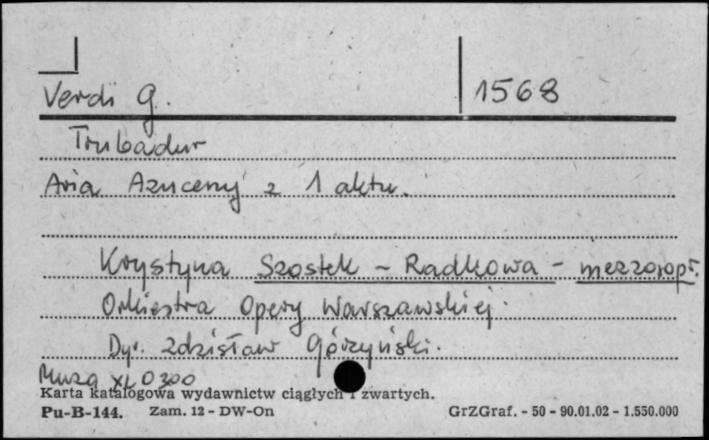 Verdi G. 1568
Trubadur
Aria Azuceny z 1 aktu.
Krystyna Szostek - Radkowa - mezzosopr.
Orkiestra Opery Warszawskiej.
Dyr. Zdzisław Górzyński.
Muza XL 0300
Karta katalogowa wydawnictw ciągłych i zwartych.
Pu-B-144. Zam. 12 - DW-On GrZGraf. - 50 - 90.01.02 - 1.550.000